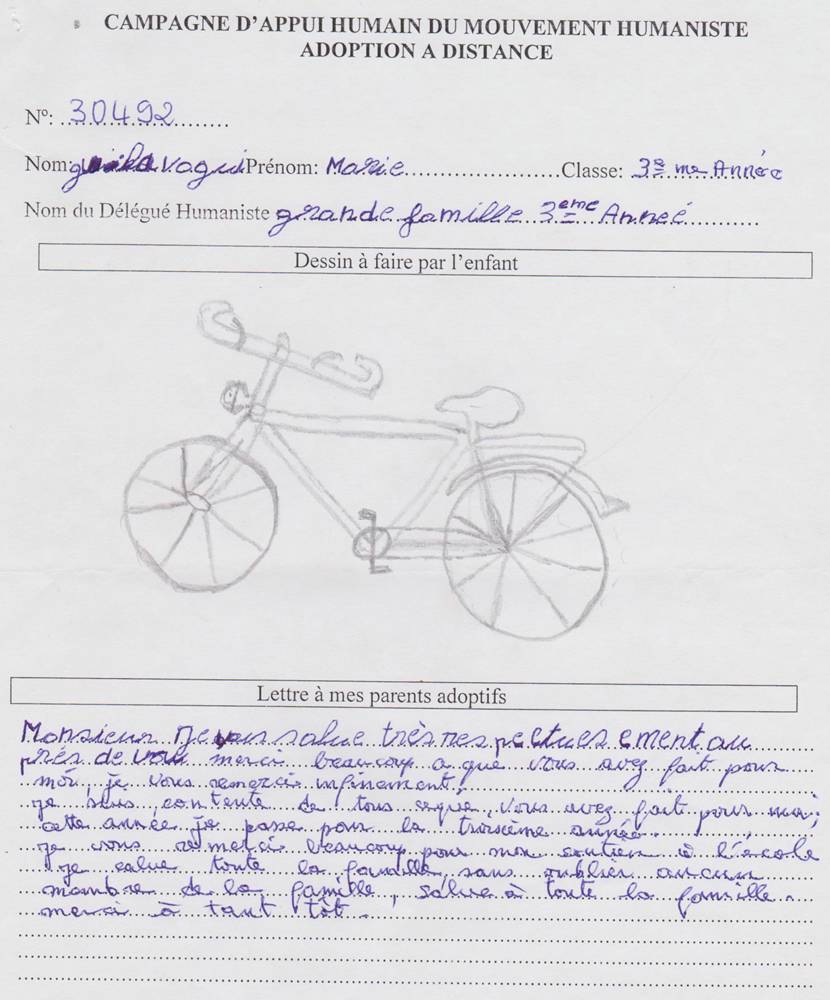 CAMPAGNE D'APPUI HUMAIN DU MOUVEMENT HUMANISTE
ADOPTION A DISTANCE
Nº: 30492
Nom: vogui Prénom: Marie Classe: 3è me Année
Nom du Délégué Humaniste grande famille 3eme Anneé
Dessin à faire par l'enfant
Lettre à mes parents adoptifs
Monsieur je vous salue très respectuesement au
près de vous merci beaucoup a que vous avez fait pour
moi, je vous remercis infinement.
je suis contente de tous ceque vous avez fait pour moi,
cette année je passe pour la troisième année.
je vous remerci beaucoup pour mon soutien à l'école
je salue toute la famille, sans oublier aucun
mambre de la famille, salue à toute la famille.
merci à tant tôt.